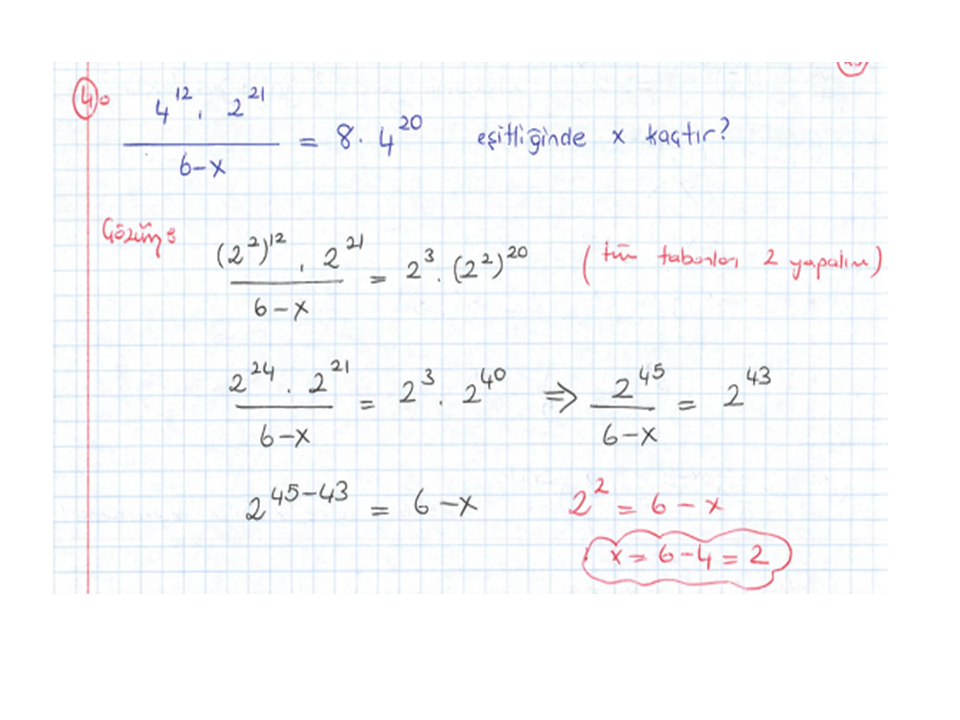 4. 4^12 . 2^21 / 6-x = 8 . 4^20 eşitliğinde x kaçtır?
Çözüm:
(2^2)^12 . 2^21 / 6-x = 2^3 . (2^2)^20 (tüm tabanları 2 yapalım)
2^24 . 2^21 / 6-x = 2^3 . 2^40 ⇒ 2^45 / 6-x = 2^43
2^45-43 = 6-x 2^2 = 6-x
x = 6-4 = 2